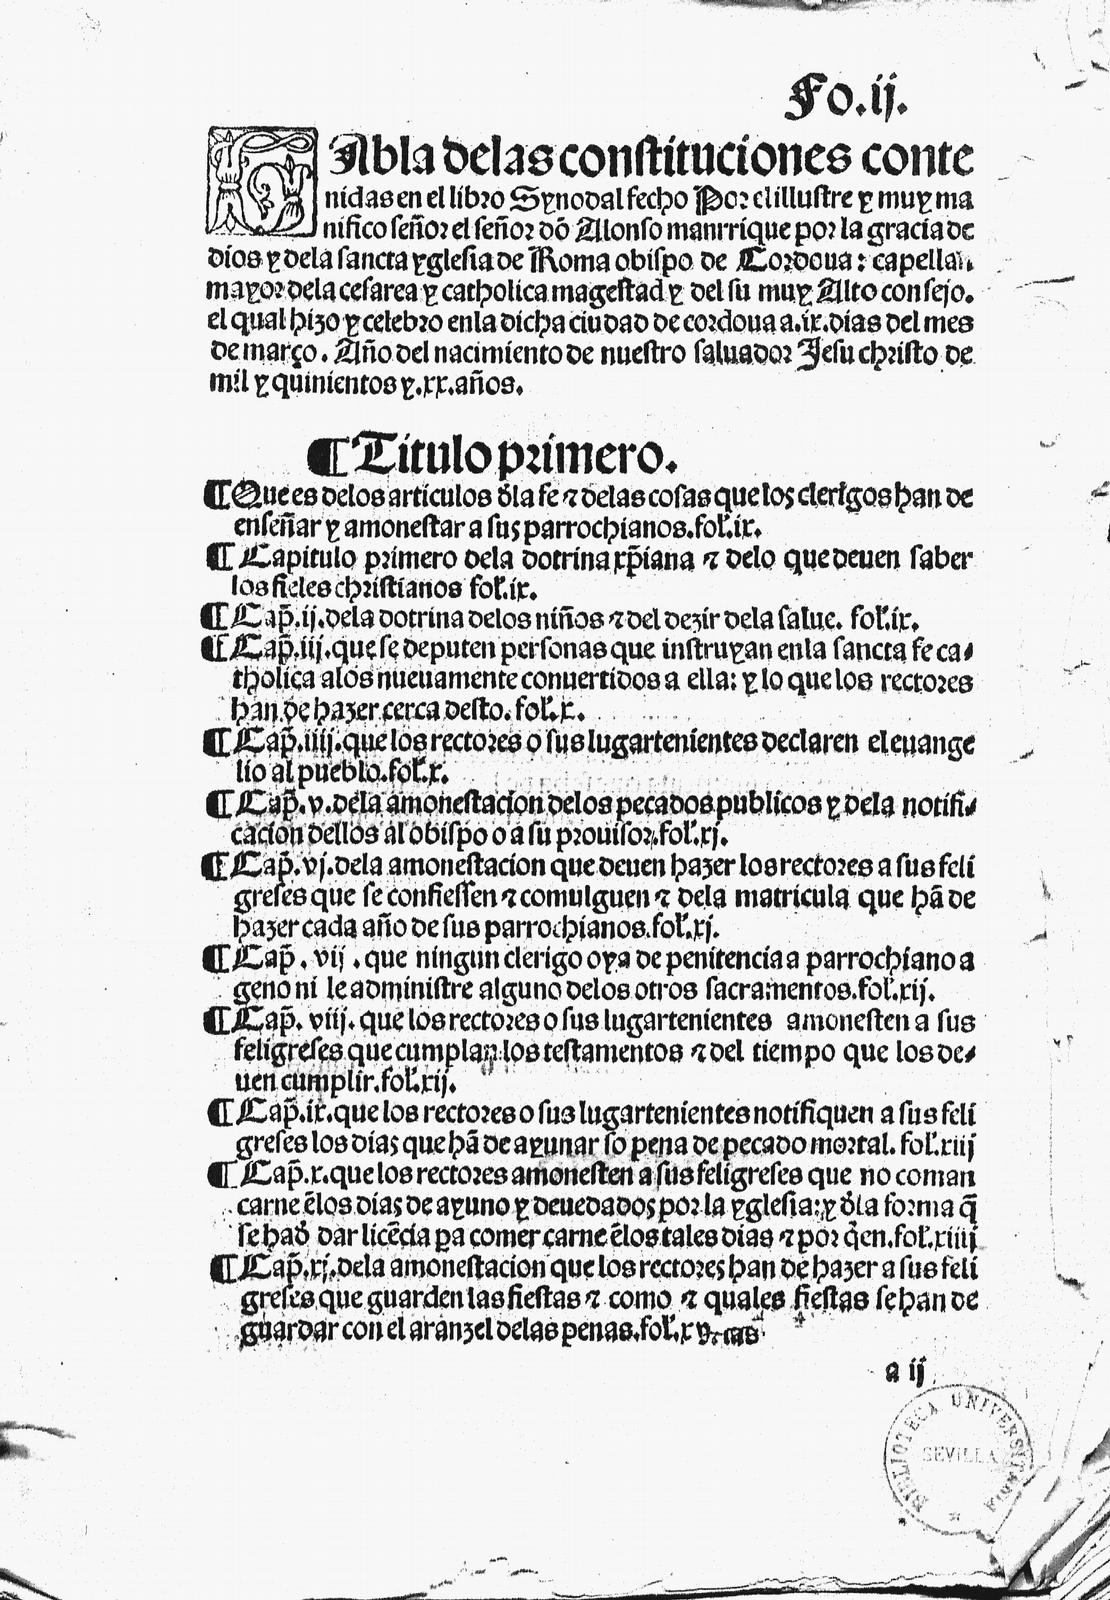 Fo.ij.
TAbla delas constituciones conte
nidas en el libro Synodal fecho Por el illustre y muy ma
nifico señor el señor dõ Alonso manrrique por la gracia de
dios y dela sancta yglesia de Roma obispo de Cordoua: capellan
mayor dela cesarea y catholica magestad y del su muy Alto consejo.
el qual hizo y celebro enla dicha ciudad de cordoua a.ix.dias del mes
de março. Año del nacimiento de nuestro saluador Jesu christo de
mil y quinientos y.xx.años.
¶Titulo primero.
¶Que es delos articulos d̃la fe ⁊ delas cosas que los clerigos han de
enseñar y amonestar a sus parrochianos.fol.ix.
¶Capitulo primero dela dotrina xp̃iana ⁊ delo que deuen saber
los fieles christianos fol.ix.
¶Cap̃.ij.dela dotrina delos niños ⁊ del dezir dela salue. fol.ix.
¶Cap̃.iij.que se deputen personas que instruyan enla sancta fe ca-
tholica alos nueuamente conuertidos a ella: y lo que los rectores
han de hazer cerca desto. fol.x.
¶Cap̃.iiij.que los rectores o sus lugartenientes declaren el euange
lio al pueblo.fol.x.
¶Cap̃.v.dela amonestacion delos pecados publicos y dela notifi-
cacion dellos al obispo o a su prouisor.fol.xj.
¶Cap̃.vj.dela amonestacion que deuen hazer los rectores a sus feli
greses que se confiessen ⁊ comulguen ⁊ dela matricula que hã de
hazer cada año de sus parrochianos.fol.xj.
¶Cap̃.vij.que ningun clerigo oya de penitencia a parrochiano a
geno ni le administre alguno delos otros sacramentos.fol.xij.
¶Cap̃. viij. que los rectores o sus lugartenientes amonesten a sus
feligreses que cumplan los testamentos ⁊ del tiempo que los de-
uen cumplir.fol.xij.
¶Cap̃.ix.que los rectores o sus lugartenientes notifiquen a sus feli
greses los dias que hã de ayunar so pena de pecado mortal. fol.xiij
¶Cap̃.x.que los rectores amonesten a sus feligreses que no coman
carne ẽlos dias de ayuno y deuedados por la yglesia:y d̃la forma q̃
se had̃ dar licẽcia pa comer carne ẽlos tales dias ⁊ por q̃en.fol.xiiij
¶Cap̃.xj.dela amonestacion que los rectores han de hazer a sus feli
greses que guarden las fiestas ⁊ como ⁊ quales fiestas se han de
guardar con el aranzel delas penas.fol.xv
a ij
BIBLIOTECA UNIVERSITARIA
SEVILLA